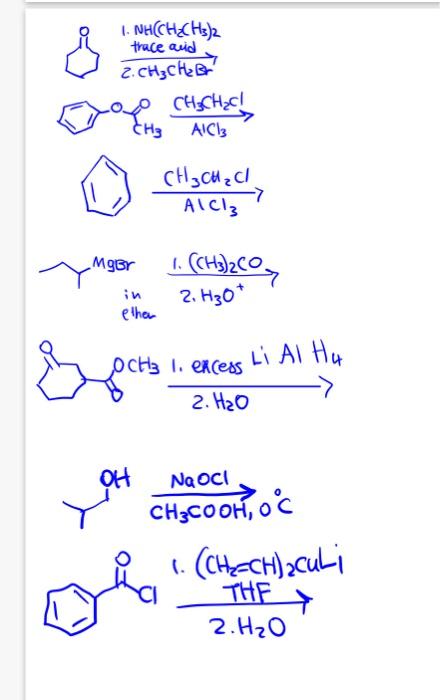 O
1. NH(CH2CH3)2
trace acid
2. CH3CH2Br
O O CH3CH2Cl
CH3 AlCl3
CH3CH2Cl
AlCl3
MgBr 1. (CH3)2CO
in 2. H3O+
ether
O
OCH3 1. excess Li Al H4
O 2. H2O
OH NaOCl
CH3COOH, 0°C
O 1. (CH2=CH)2CuLi
Cl THF
2. H2O